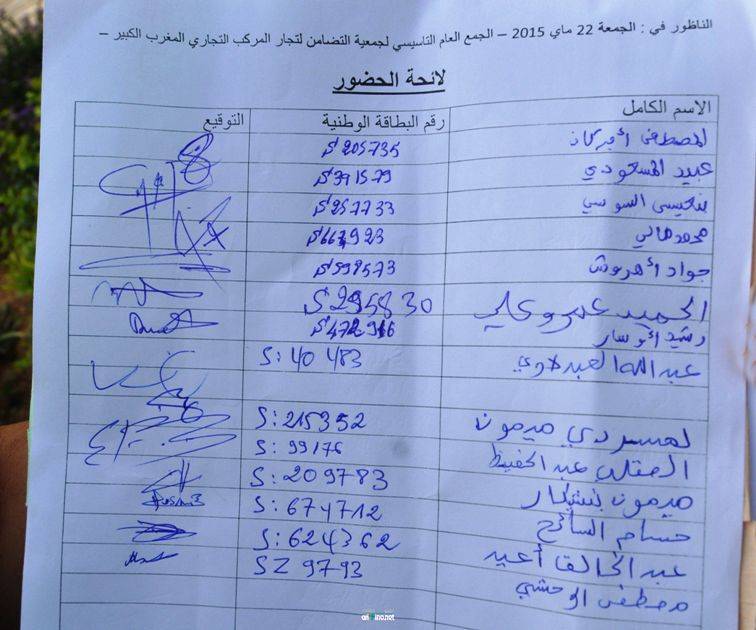 الناظور في : الجمعة 22 ماي 2015 – الجمع العام التاسيسي لجمعية التضامن لتجار المركب التجاري المغرب الكبير –
لائحة الحضور
الاسم الكامل رقم البطاقة الوطنية التوقيع
المصطفى S 205735
عبيد المسعودي S 391579
السوسي S 257733
محمد هاني S 667923
جواد أهروش S 598573
الحميد عمرو علي S 295830
رشيد أوسار S 472916
عبد الله العبدلاوي S: 40 483
ميمون S: 215352
الصقلي عبد الحفيظ S: 99176
ميمون بنشلار S: 209783
حسام السائح S: 674712
عبد الخالق أعيد S: 624362
مصطفى الوحشي SZ 9793